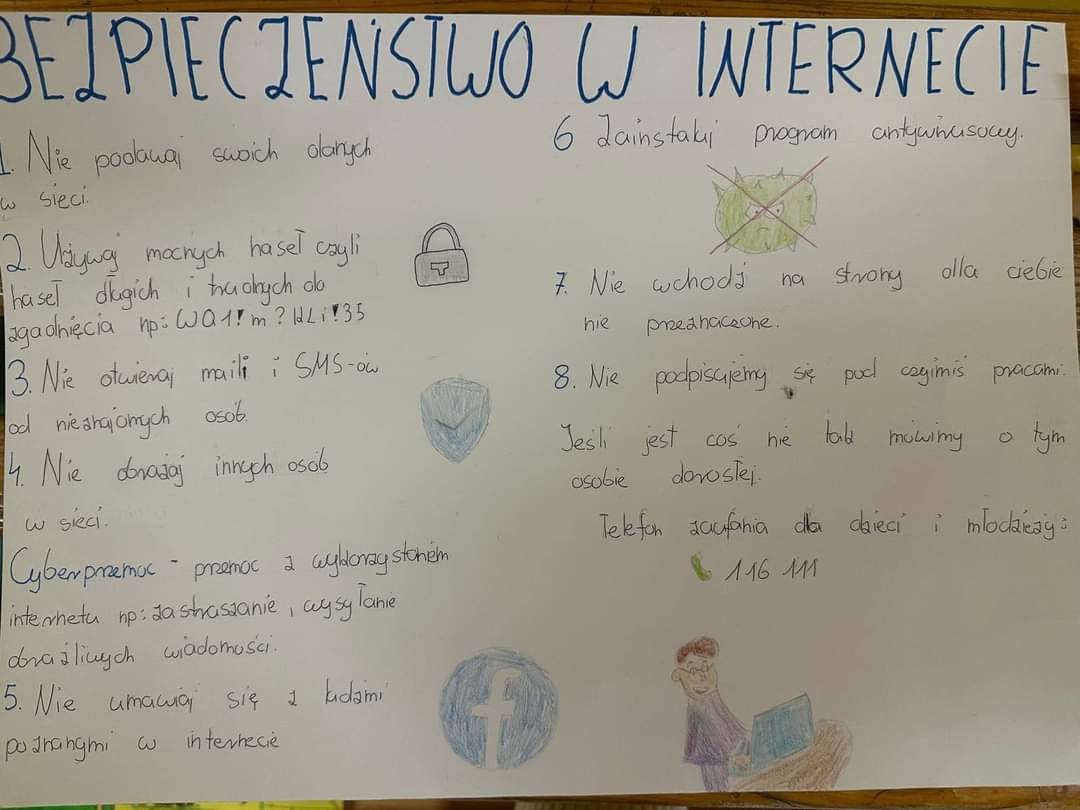 BEZPIECZEŃSTWO W INTERNECIE
1. Nie podawaj swoich danych
w sieci.
2. Używaj mocnych haseł czyli
haseł długich i trudnych do
zgadnięcia np: WQ1!m?KLi!35
3. Nie otwieraj maili i SMS-ów
od nieznajomych osób.
4. Nie obrażaj innych osób
w sieci.
Cyberprzemoc - przemoc z wykorzystaniem
internetu np: zastraszanie, wysyłanie
obraźliwych wiadomości.
5. Nie umawiaj się z ludźmi
poznanymi w internecie
6 Zainstaluj program antywirusowy.
7. Nie wchodź na strony dla ciebie
nie przeznaczone.
8. Nie podpisujemy się pod czyimiś pracami.
Jeśli jest coś nie tak mówimy o tym
osobie dorosłej.
Telefon zaufania dla dzieci i młodzieży:
116 111
f